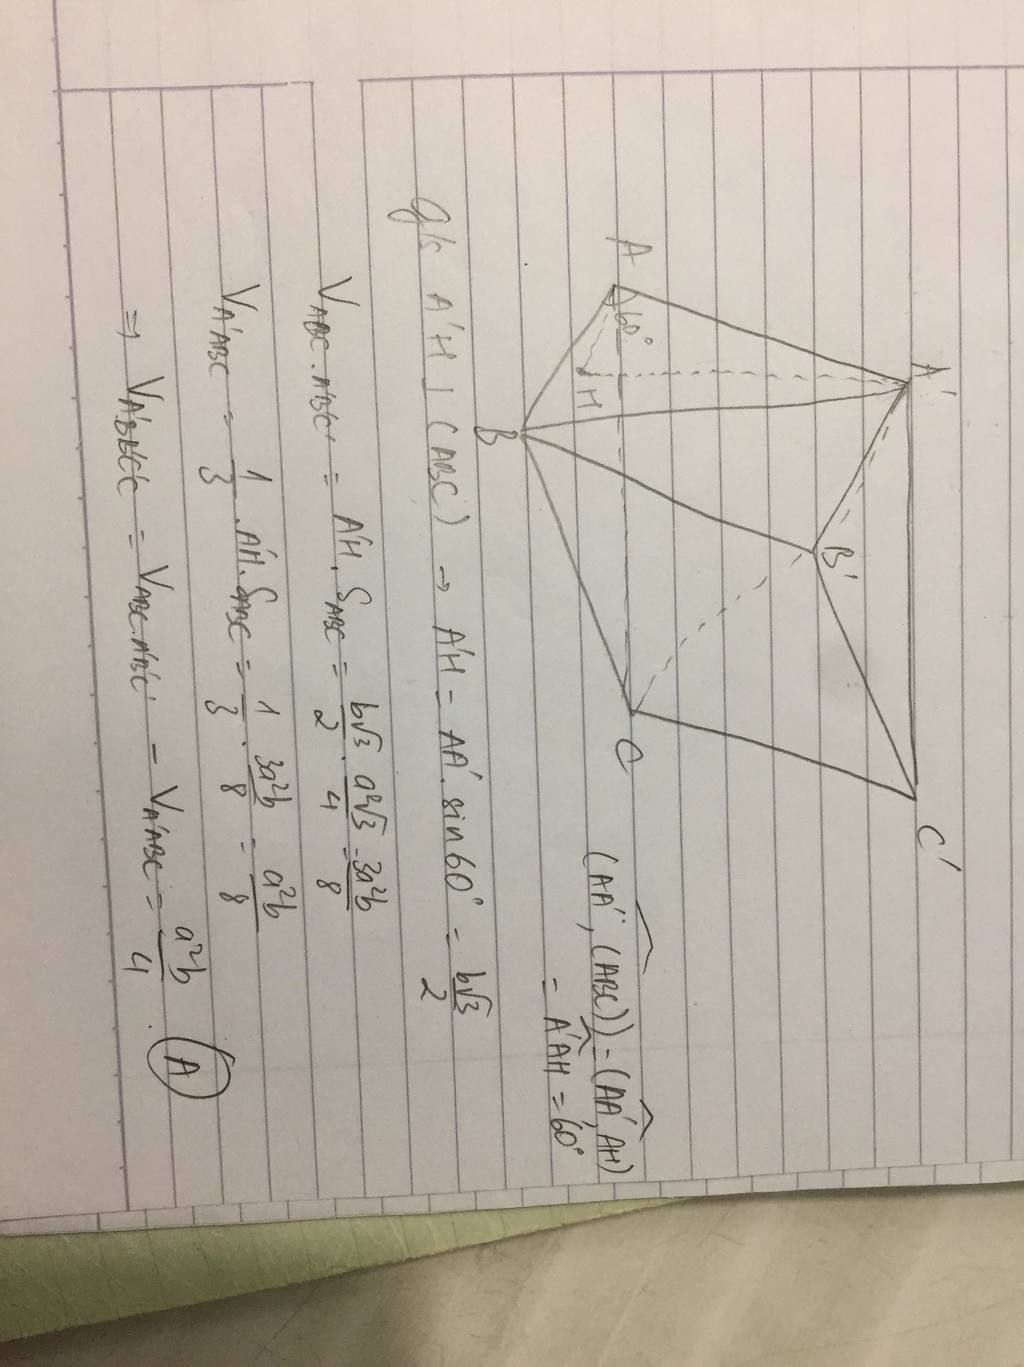 A'
C'
B'
A
60°
H
C
B
(AA', (ABC)) = (AA', AH)
= A'AH = 60°
g/s A'H ⊥ (ABC) → A'H = AA'. sin60° = b√3/2
VABC.A'B'C' = A'H. SABC = b√3/2 . a²√3/4 = 3a²b/8
VA'ABC = 1/3 . A'H. SABC = 1/3 . 3a²b/8 = a²b/8
⇒ VA'BB'C'C = VABC.A'B'C' - VA'ABC = a²b/4 .
A